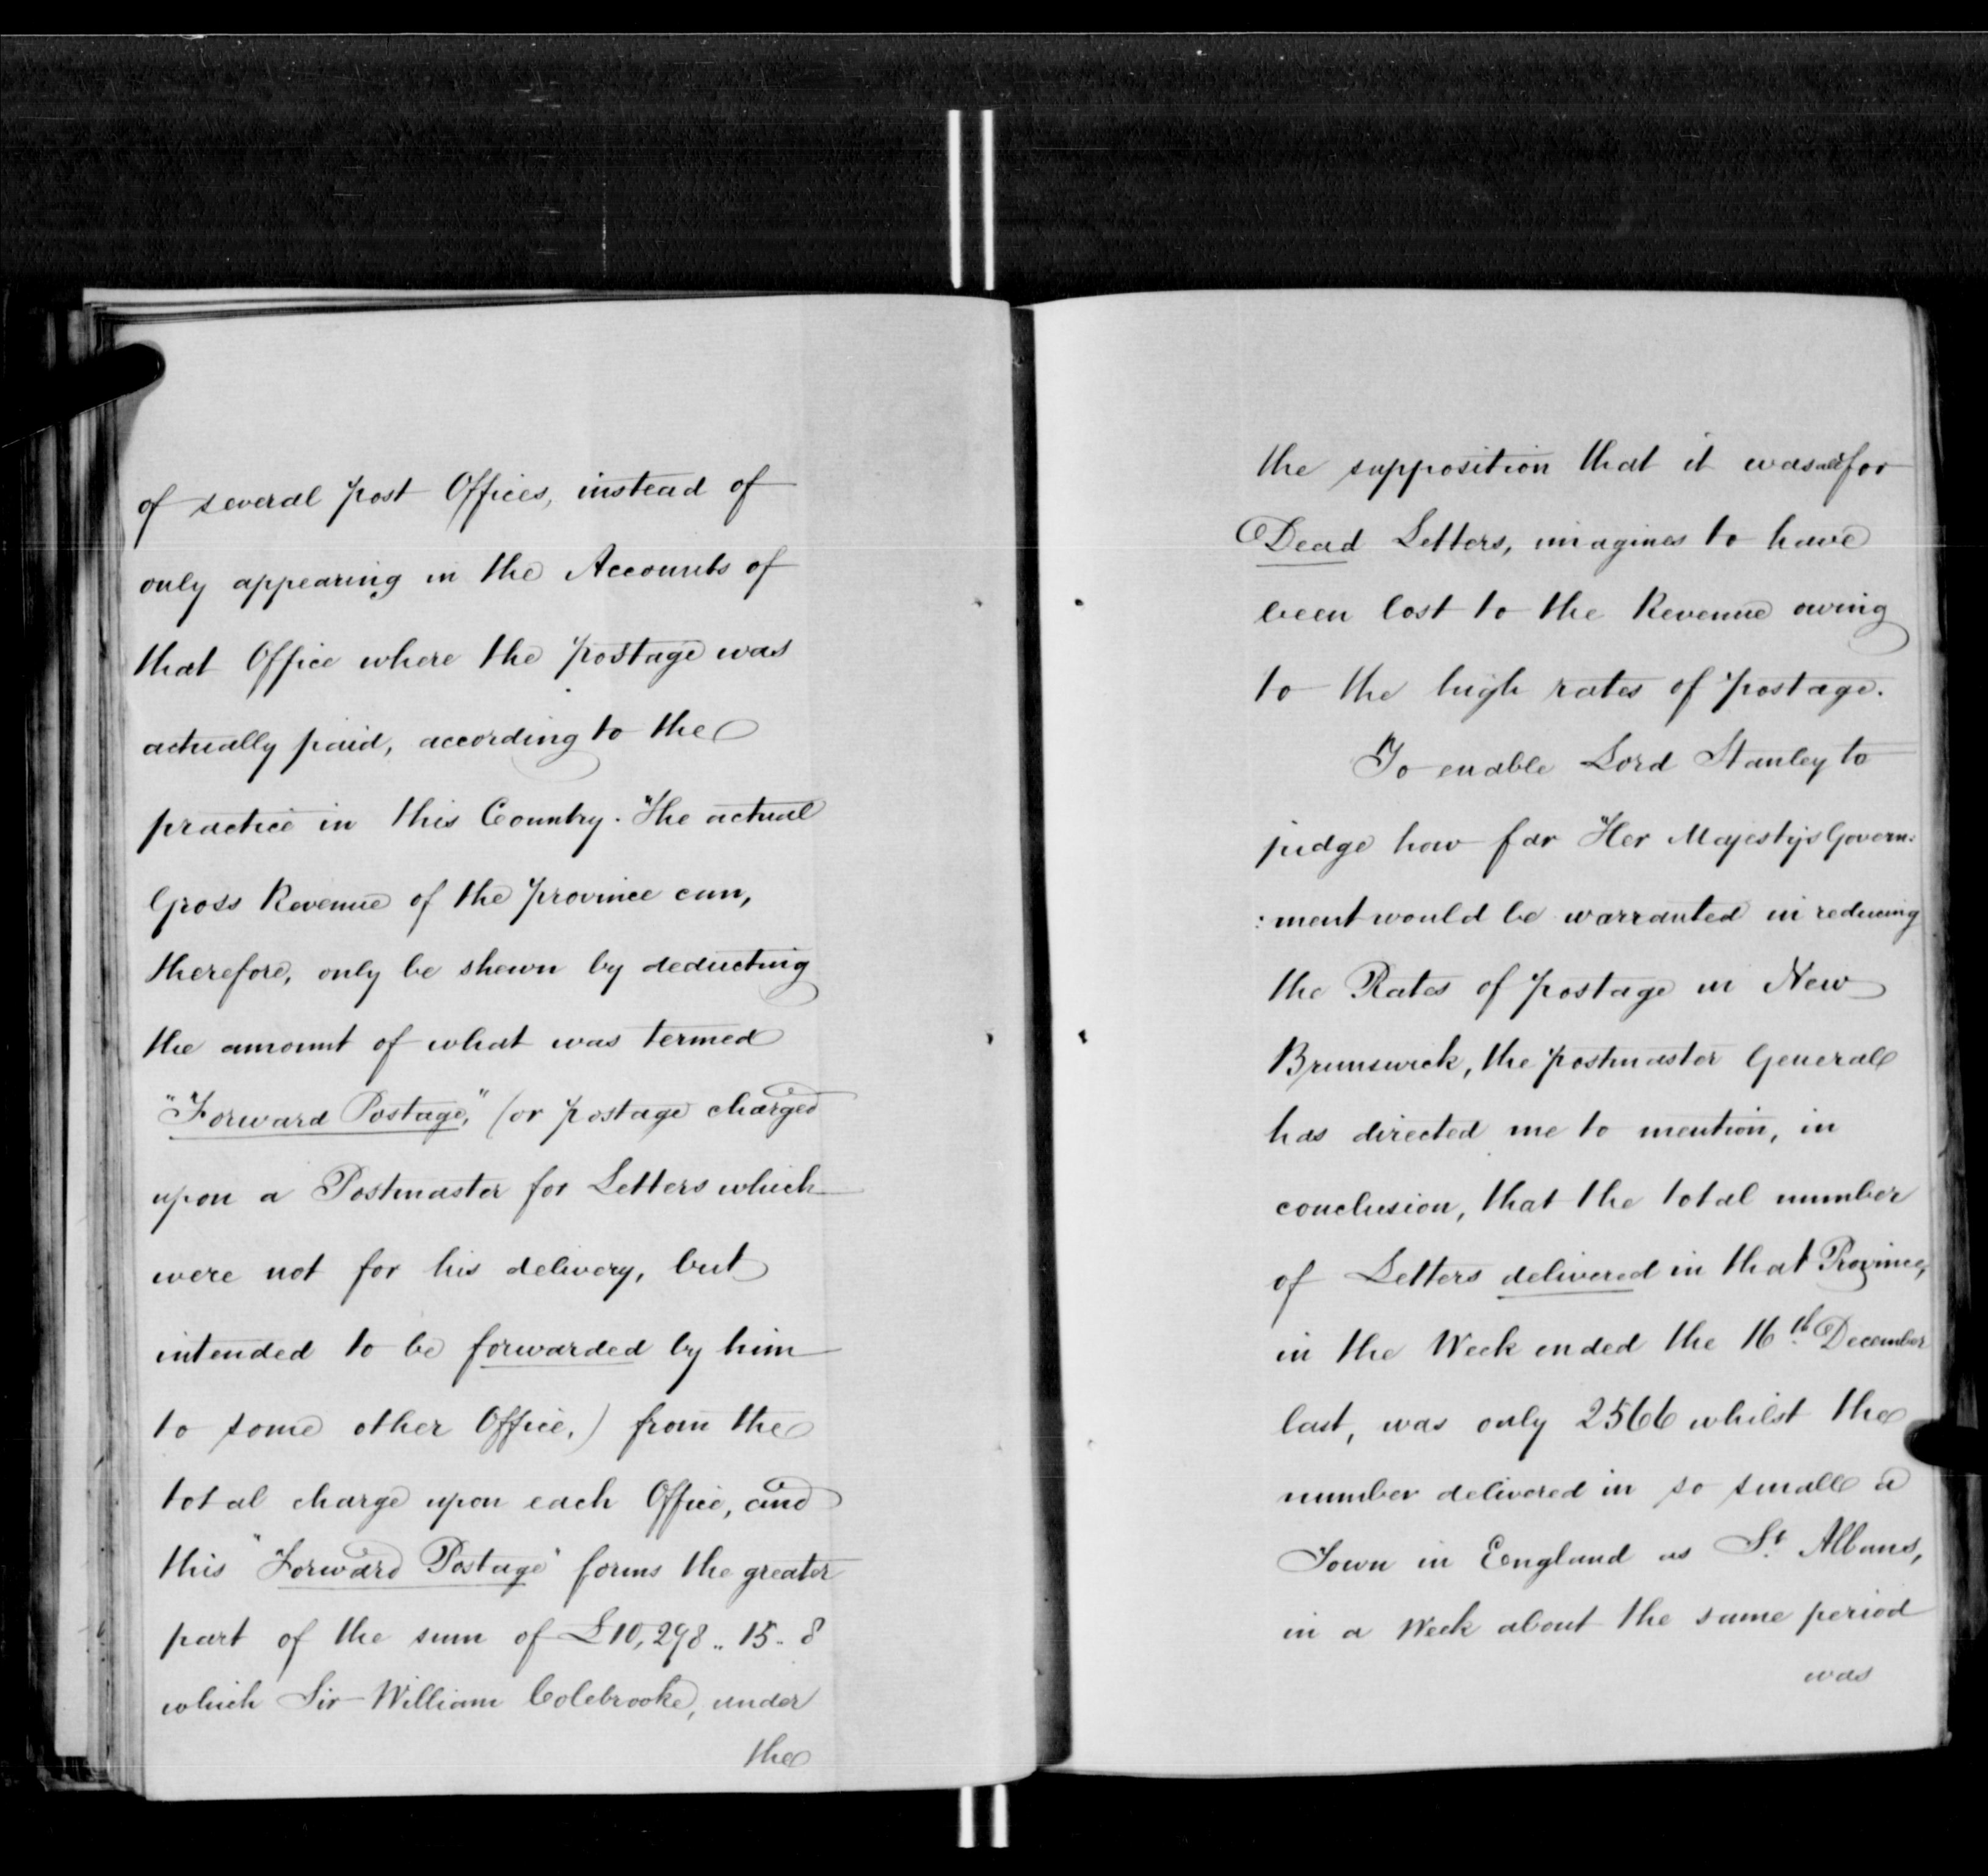 of several post Offices, instead of
only appearing in the Accounts of
that Office where the postage was
actually paid, according to the
practice in this Country. The actual
Gross Revenue of the province can,
therefore, only be shewn by deducting
the amount of what was termed
"Forward Postage," (or postage charged
upon a Postmaster for Letters which
were not for his delivery, but
intended to be forwarded by him
to some other Office,) from the
total charge upon each Office, and
this "Forward Postage" forms the greater
part of the sum of £10,298.. 15. 8
which Sir William Colebrooke, under
the
the supposition that it was all for
Dead Letters, imagines to have
been lost to the Revenue owing
to the high rates of postage.
To enable Lord Stanley to
judge how far Her Majesty's Govern:
:ment would be warranted in reducing
the Rates of postage in New
Brunswick, the postmaster General
has directed me to mention, in
conclusion, that the total number
of Letters delivered in that Province,
in the Week ended the 16th December
last, was only 2566 whilst the
number delivered in so small a
Town in England as St. Albans,
in a Week about the same period
was